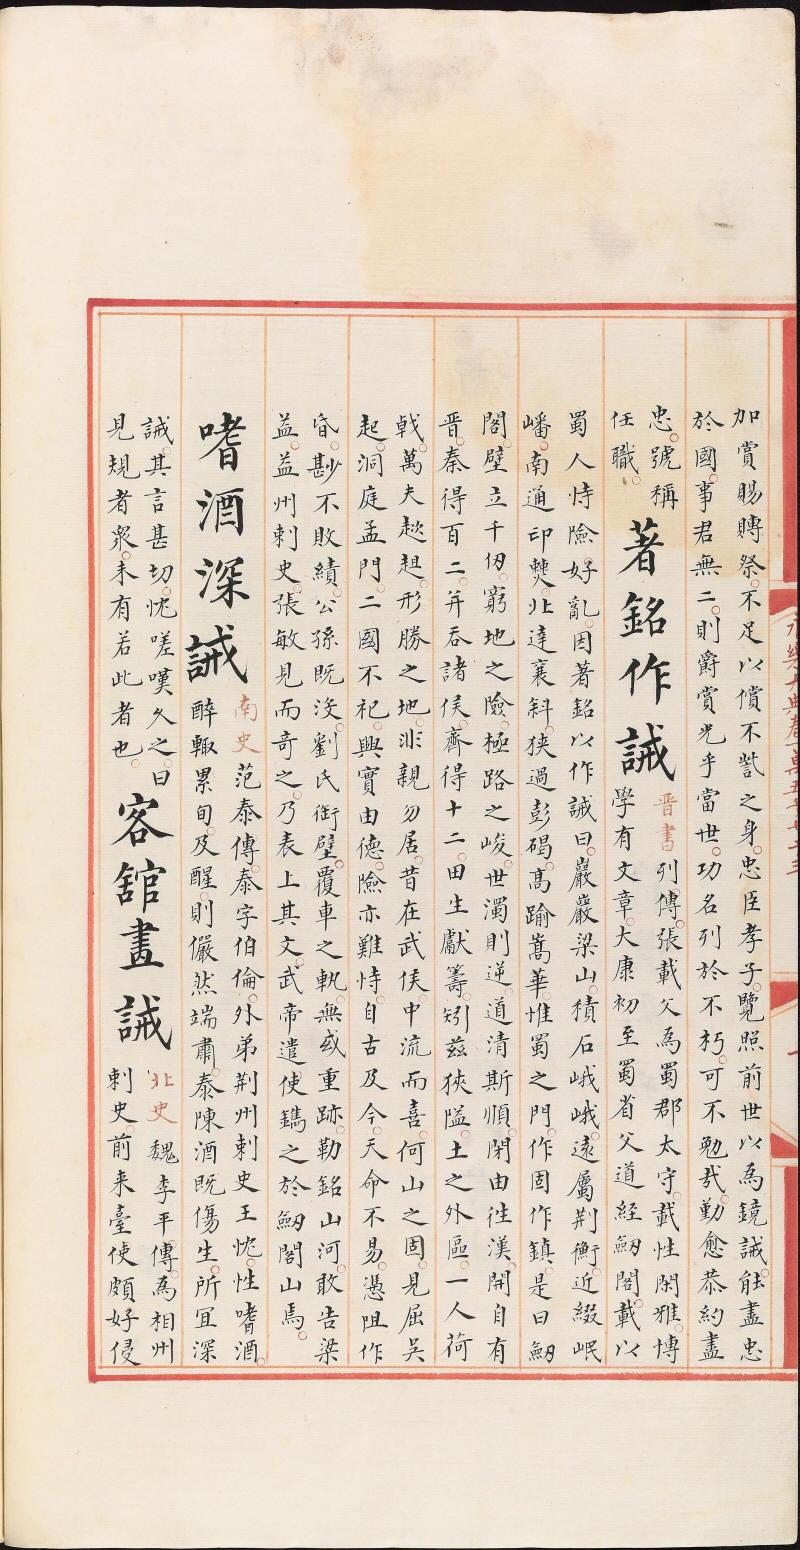 永樂大典卷一萬五千七十三
加賞賜賻祭。不足以償不訾之身。忠臣孝子。覽照前世以為鏡誡。能盡忠
於國。事君無二。則爵賞光乎當世。功名列於不朽。可不勉哉。勤愈恭約盡
忠。號稱
任職。
著銘作誡
晉書列傳。張載父為蜀郡太守。載性閑雅。博
學有文章。大康初至蜀省父。道經劒閣。載以
蜀人恃險。好亂。因著銘以作誡曰。巖巖梁山。積石峨峨。遠屬荆衡。近綴岷
嶓。南通卬僰。北達襄斜。狹過彭碣。髙踰嵩華。惟蜀之門。作固作鎮。是曰劒
閣。壁立千仞。窮地之險。極路之峻。世濁則逆。道清斯順。閉由徃漢。開自有
晋。秦得百二。并吞諸侯。齊得十二。田生獻籌。矧兹狹隘。土之外區。一人荷
戟。萬夫趑趄。形勝之地。非親勿居。昔在武侯。中流而喜。何山之固。見屈吳
起。洞庭孟門。二國不祀。興實由德。險亦難恃。自古及今。天命不易。憑阻作
昏。尠不敗績。公孫既没。劉氏銜璧。覆車之軌。無或重跡。勒銘山河。敢告梁
益。益州刺史。張敏見而奇之。乃表上其文。武帝遣使鐫之於劒閣山焉。
嗜酒深誡
南史范泰傳。泰字伯倫。外弟荆州刺史王忱。性嗜酒。
醉輙累旬。及醒。則儼然端肅。泰陳酒既傷生。所宜深
誡。其言甚切。忱嗟嘆久之。曰
見規者衆。未有若此者也。
客舘畫誡
北史魏李平傳。為相州
刺史。前来臺使頗好侵